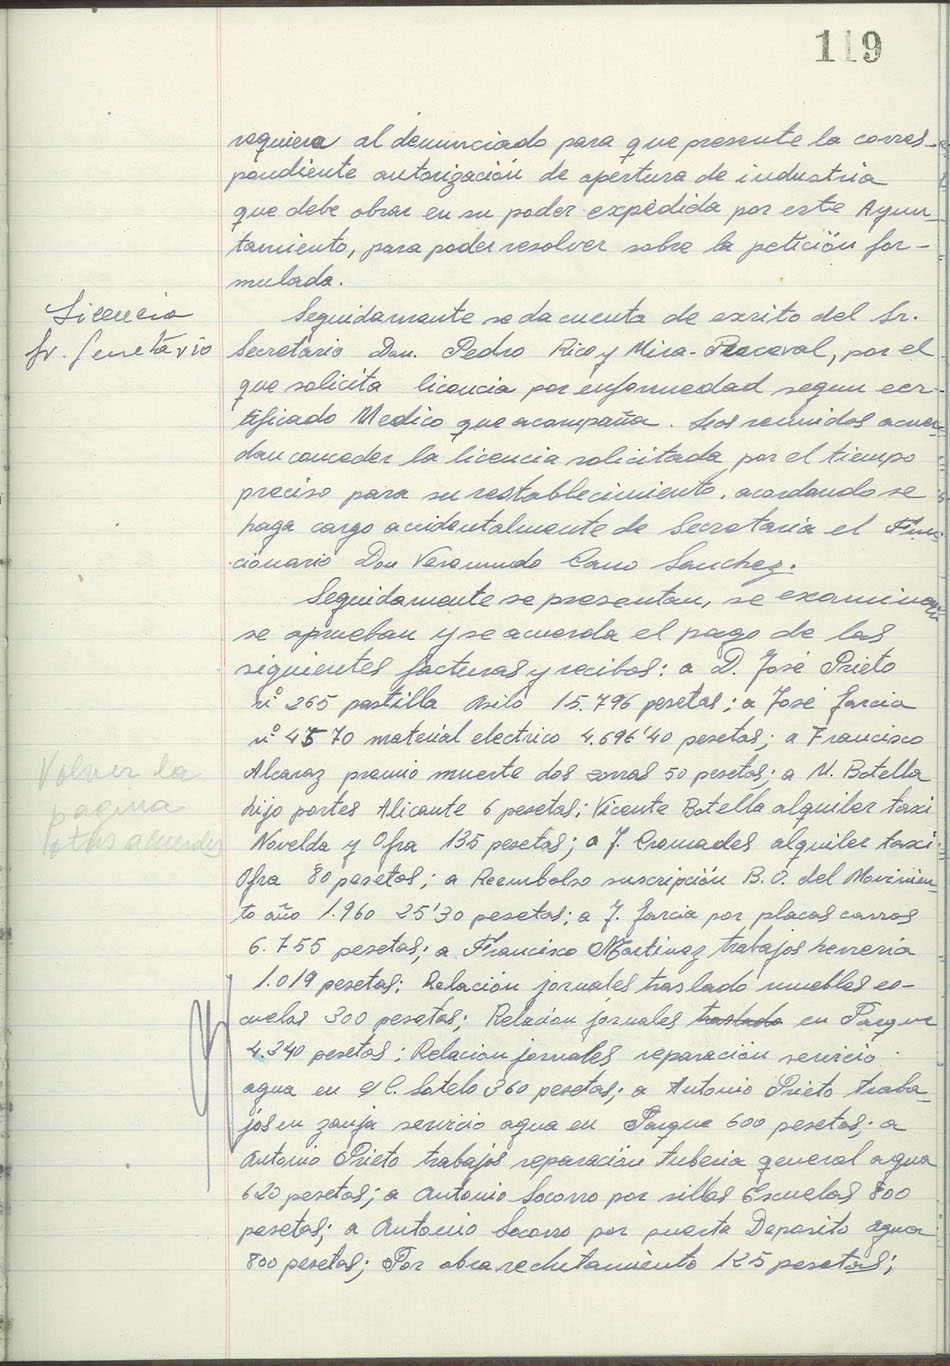 119
requiera al denunciado para que presente la corres-
pondiente autorización de apertura de industria
que debe obrar en su poder expédida por este Ayun-
tamiento, para poder resolver sobre la petición for-
mulada.
Licencia
Sr. Secretario
Seguidamente se da cuenta de exrito del Sr.
Secretario Don. Pedro Rico y Mira-Perceval, por el
que solicita licencia por enfermedad segun cer-
tificado Medico que acompaña. Los reunidos acuer-
dan conceder la licencia solicitada por el tiempo
preciso para su restablecimiento, acordando se
haga cargo accidentalmente de Secretaria el Fun-
cionario Don Veremundo Cano Sanchez.
Seguidamente se presentan, se examinan
se aprueban y se acuerda el pago de las
siguientes facturas y recibos: a D. José Prieto
nº 265 pastilla Asilo 15.796 pesetas; a José Garcia
nº 4570 material electrico 4.696'40 pesetas; a Francisco
Alcaraz premio muerte dos zorras 50 pesetas; a V. Botella
hijo portes Alicante 6 pesetas; Vicente Botella alquiler taxi
Novelda y Ofra 135 pesetas; a J. Cremades alquiler taxi
Ofra 80 pesetas; a Reembolso suscripción B. O. del Movimien-
to año 1.960 25'30 pesetas; a J. Garcia por placas carros
6.755 pesetas; a Francisco Martinez trabajos herreria
1.019 pesetas; Relación jornales traslado muebles es-
cuelas 300 pesetas; Relación jornales traslado en Parque
4.340 pesetas; Relacion jornales reparación servicio
agua en C. Sotelo 360 pesetas; a Antonio Prieto traba-
jos en zanja servicio agua en Parque 600 pesetas; a
Antonio Prieto trabajos reparación tuberia general agua
620 pesetas; a Antonio Socorro por sillas Escuelas 800
pesetas; a Antonio Socorro por puerta Deposito agua
800 pesetas; Por obra reclutamiento 125 pesetas;
Volver la
pagina
otros acuerdos